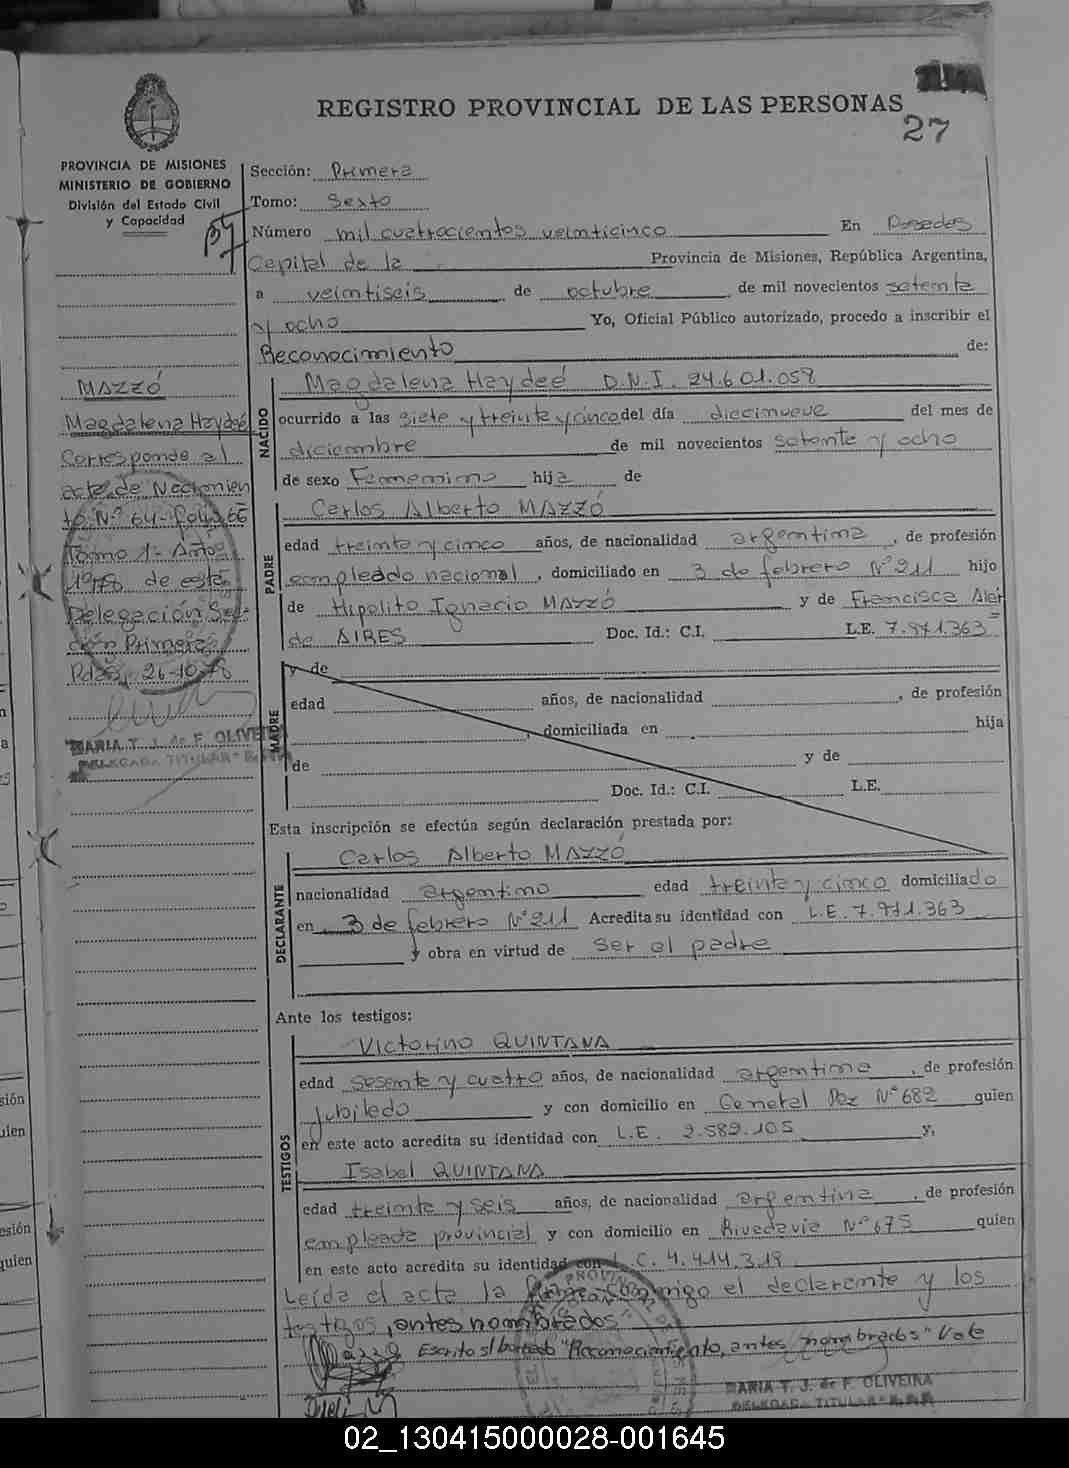 REGISTRO PROVINCIAL DE LAS PERSONAS
27
PROVINCIA DE MISIONES
MINISTERIO DE GOBIERNO
División del Estado Civil
y Capacidad
Sección: Primera
Tomo: Sexto
Número mil cuatrocientos veinticinco En Posadas
Capital de la Provincia de Misiones, República Argentina,
a veintiseis de octubre de mil novecientos setenta
y ocho Yo, Oficial Público autorizado, procedo a inscribir el
Reconocimiento de:
MAZZÓ
Magdalena Haydeé
Corresponde al
acta de Nacimien
to Nº 64- folio 66
Tomo 1- Año
1978 de esta
Delegación Sec-
ción Primera
Pdas, 26-10-78
MARIA T. J. de F. OLIVEIRA
DELEGADA TITULAR
NACIDO
Magdalena Haydeé D.N.I. 24.601.058
ocurrido a las siete y treinta y cinco del día diecinueve del mes de
diciembre de mil novecientos setenta y ocho
de sexo Femenino hija de
PADRE
Carlos Alberto MAZZÓ
edad treinta y cinco años, de nacionalidad argentina, de profesión
empleado nacional, domiciliado en 3 de febrero Nº 211 hijo
de Hipolito Ignacio MAZZÓ y de Francisca
de AIRES Doc. Id.: C.I. L.E. 7.971.363
MADRE
y de
edad años, de nacionalidad , de profesión
, domiciliada en hija
de y de
Doc. Id.: C.I. L.E.
Esta inscripción se efectúa según declaración prestada por:
DECLARANTE
Carlos Alberto MAZZÓ
nacionalidad argentino edad treinta y cinco domiciliado
en 3 de febrero Nº 211 Acredita su identidad con L.E. 7.971.363
y obra en virtud de ser el padre
Ante los testigos:
TESTIGOS
Victorino QUINTANA
edad sesenta y cuatro años, de nacionalidad argentina, de profesión
jubilado y con domicilio en General Paz Nº 682 quien
en este acto acredita su identidad con L.E. 2.582.105 y,
Isabel QUINTANA
edad treinta y seis años, de nacionalidad argentina, de profesión
empleada provincial y con domicilio en Rivadavia Nº 675 quien
en este acto acredita su identidad con L.C. 4.414.319
Leida el acta la firman conmigo el declarante y los
testigos, antes nombrados"
Escrito s/ borrado "Reconocimiento, antes nombrados" Vale
MARIA T. J. de F. OLIVEIRA
DELEGADA TITULAR
02_130415000028-001645